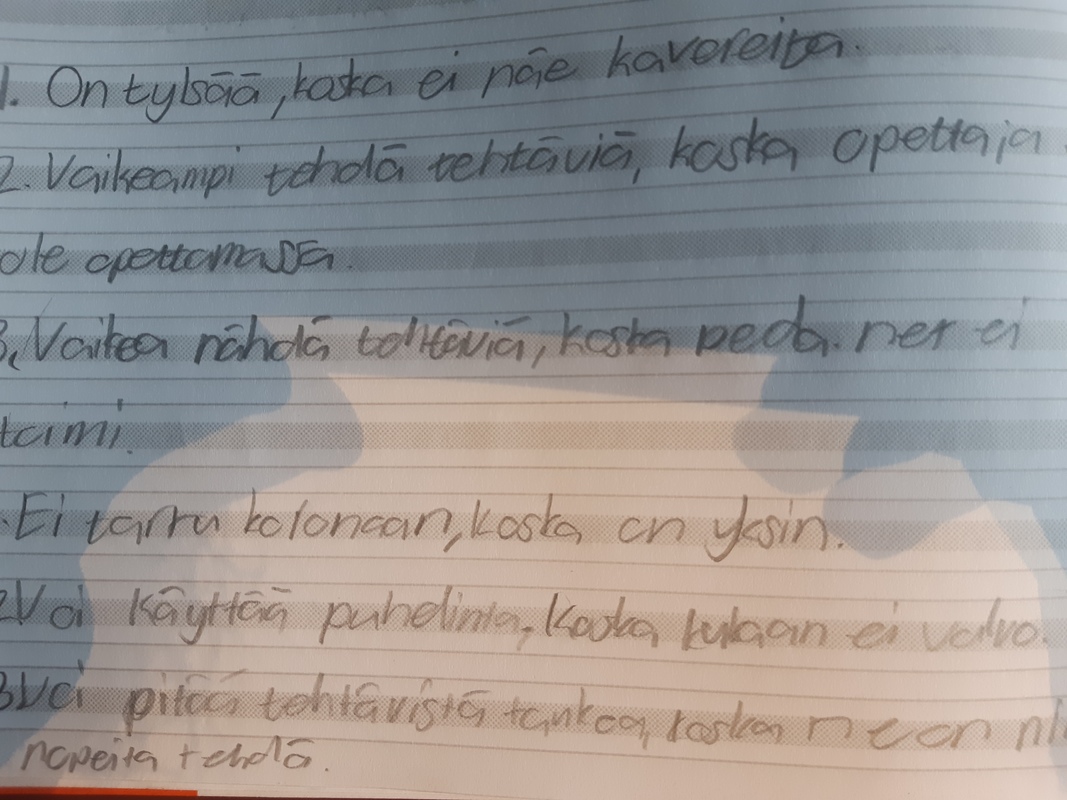 1. On tylsää, koska ei näe kavereita.
2. Vaikeampi tehdä tehtäviä, koska opettaja
ole opettamassa.
3. Vaikea nähdä tehtäviä, koska peda.net ei
toimi.
Ei tartu koronaan, koska on yksin.
2 Voi käyttää puhelinta, koska kukaan ei valvo.
3 Voi pitää tehtävistä taukoa, koska ne on
nopeita tehdä.